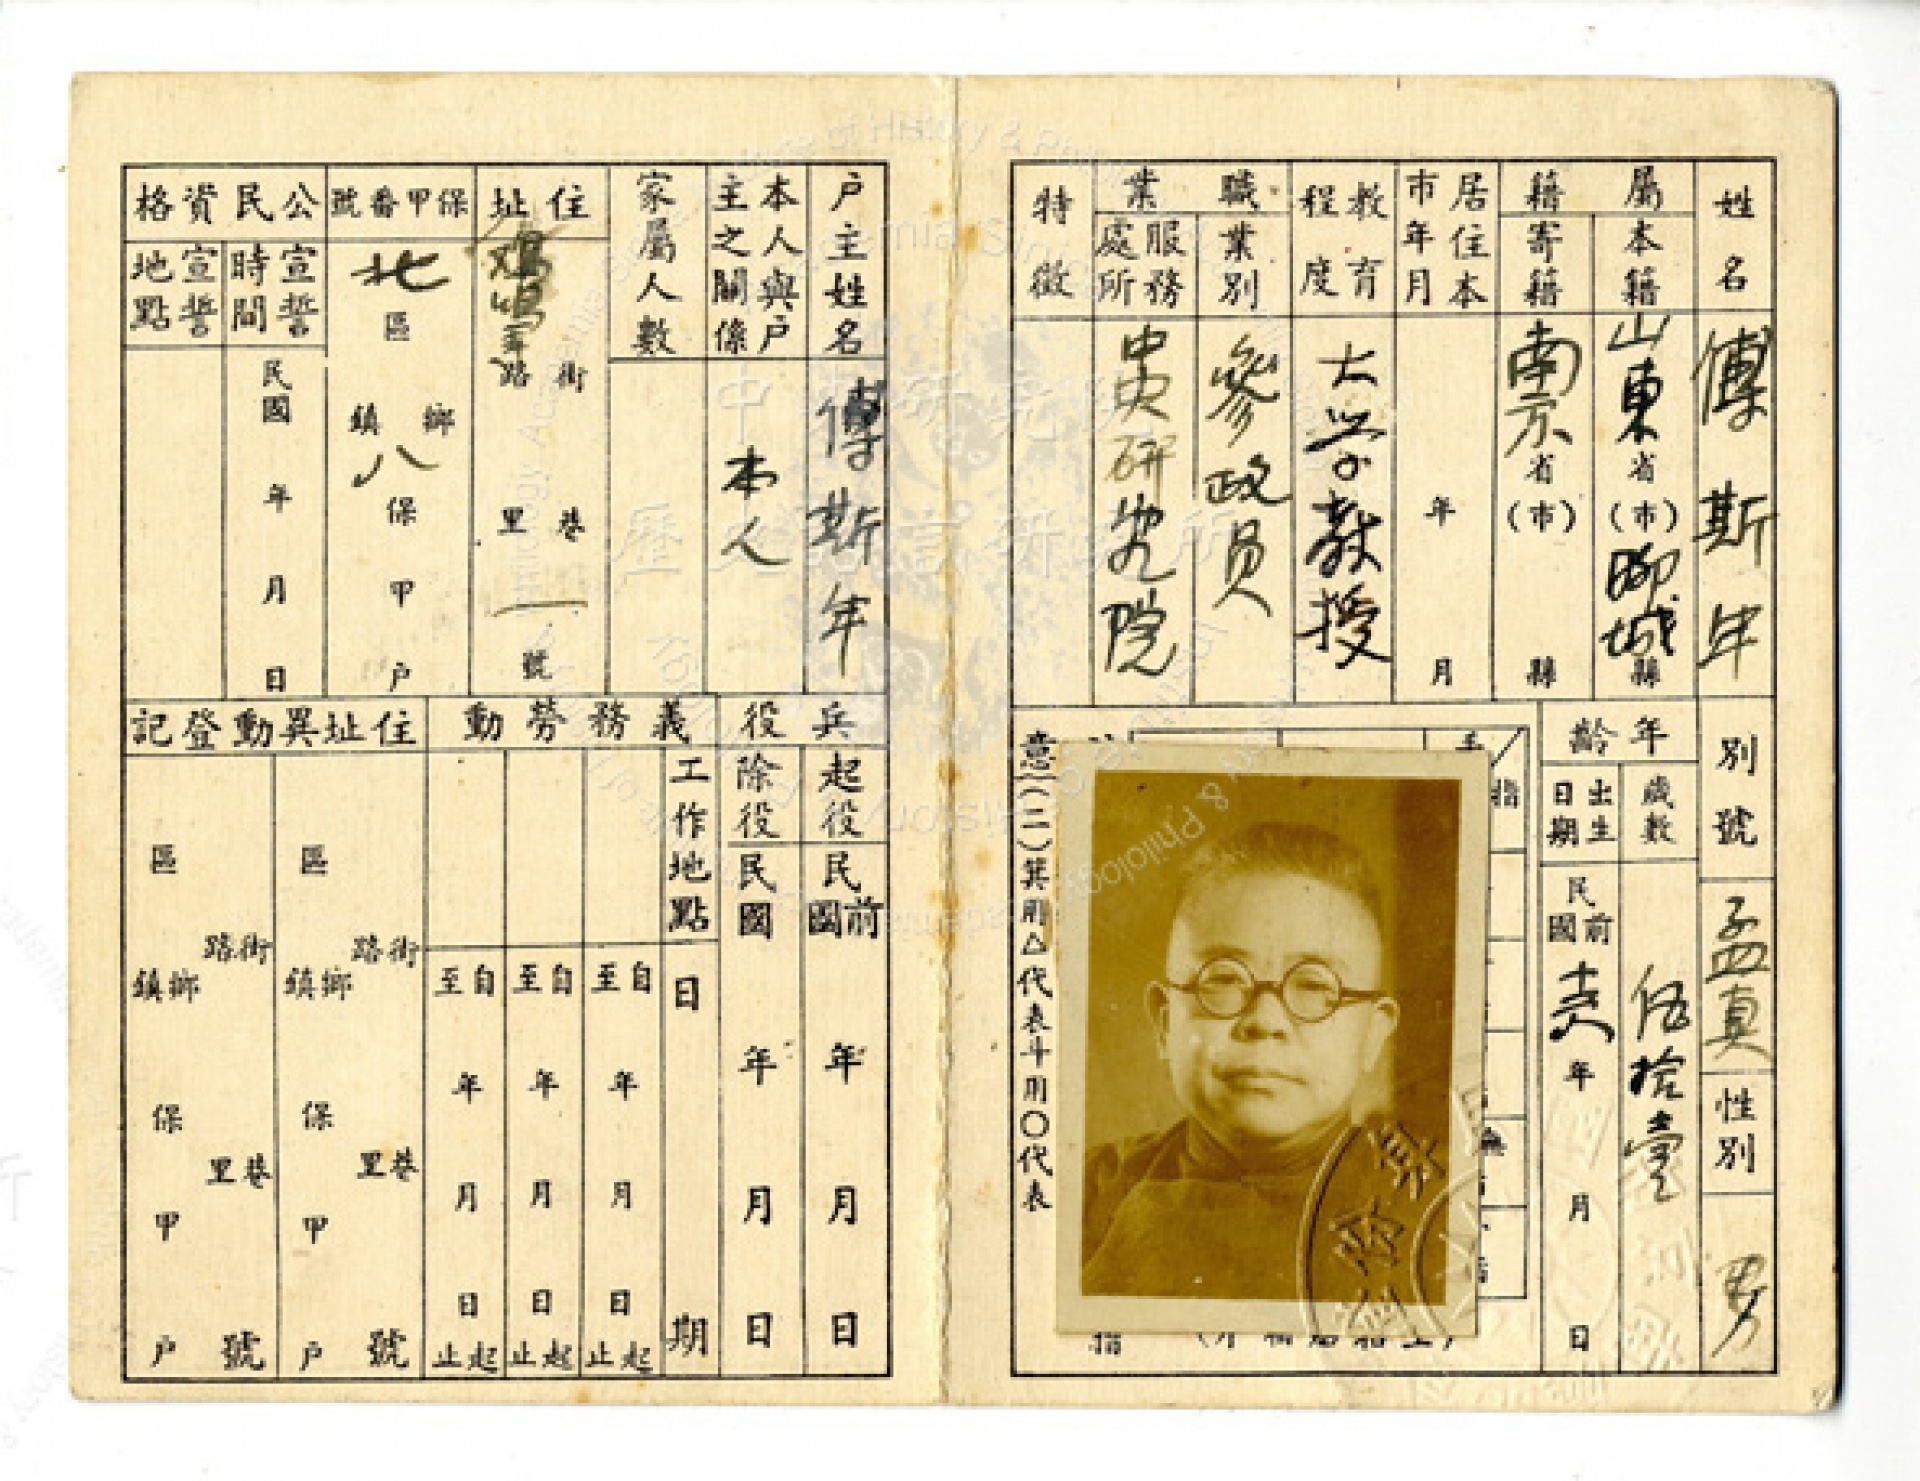 姓名
傅斯年
別號
孟真
性別
男
屬籍
本籍
山東省(市)聊城縣
寄籍
南京省(市)縣
年齡
歲數
伍拾壹
出生日期
民國前
年月日
居住本市年月
年月
教育程度
大学教授
職業
業別
參政員
服務處所
中央研究院
特徵
意(二)箕用△代表斗用○代表
戶主姓名
傅斯年
本人與戶主之關係
本人
家屬人數
住址
雞鳴寺街路
巷里
一號
保甲番號
北區
鄉鎮
八保
甲
戶
公民資格
宣誓時間
民國年月日
宣誓地點
兵役
起役
民國前年月日
除役
民國年月日
義務勞動
工作地點
日期
自年月日起
至止
自年月日起
至止
自年月日起
至止
住址異動登記
街路巷里號
區鄉鎮保甲戶
街路巷里號
區鄉鎮保甲戶
中央研究院
歷史語言研究所
Institute of History & Philology, Academia Sinica